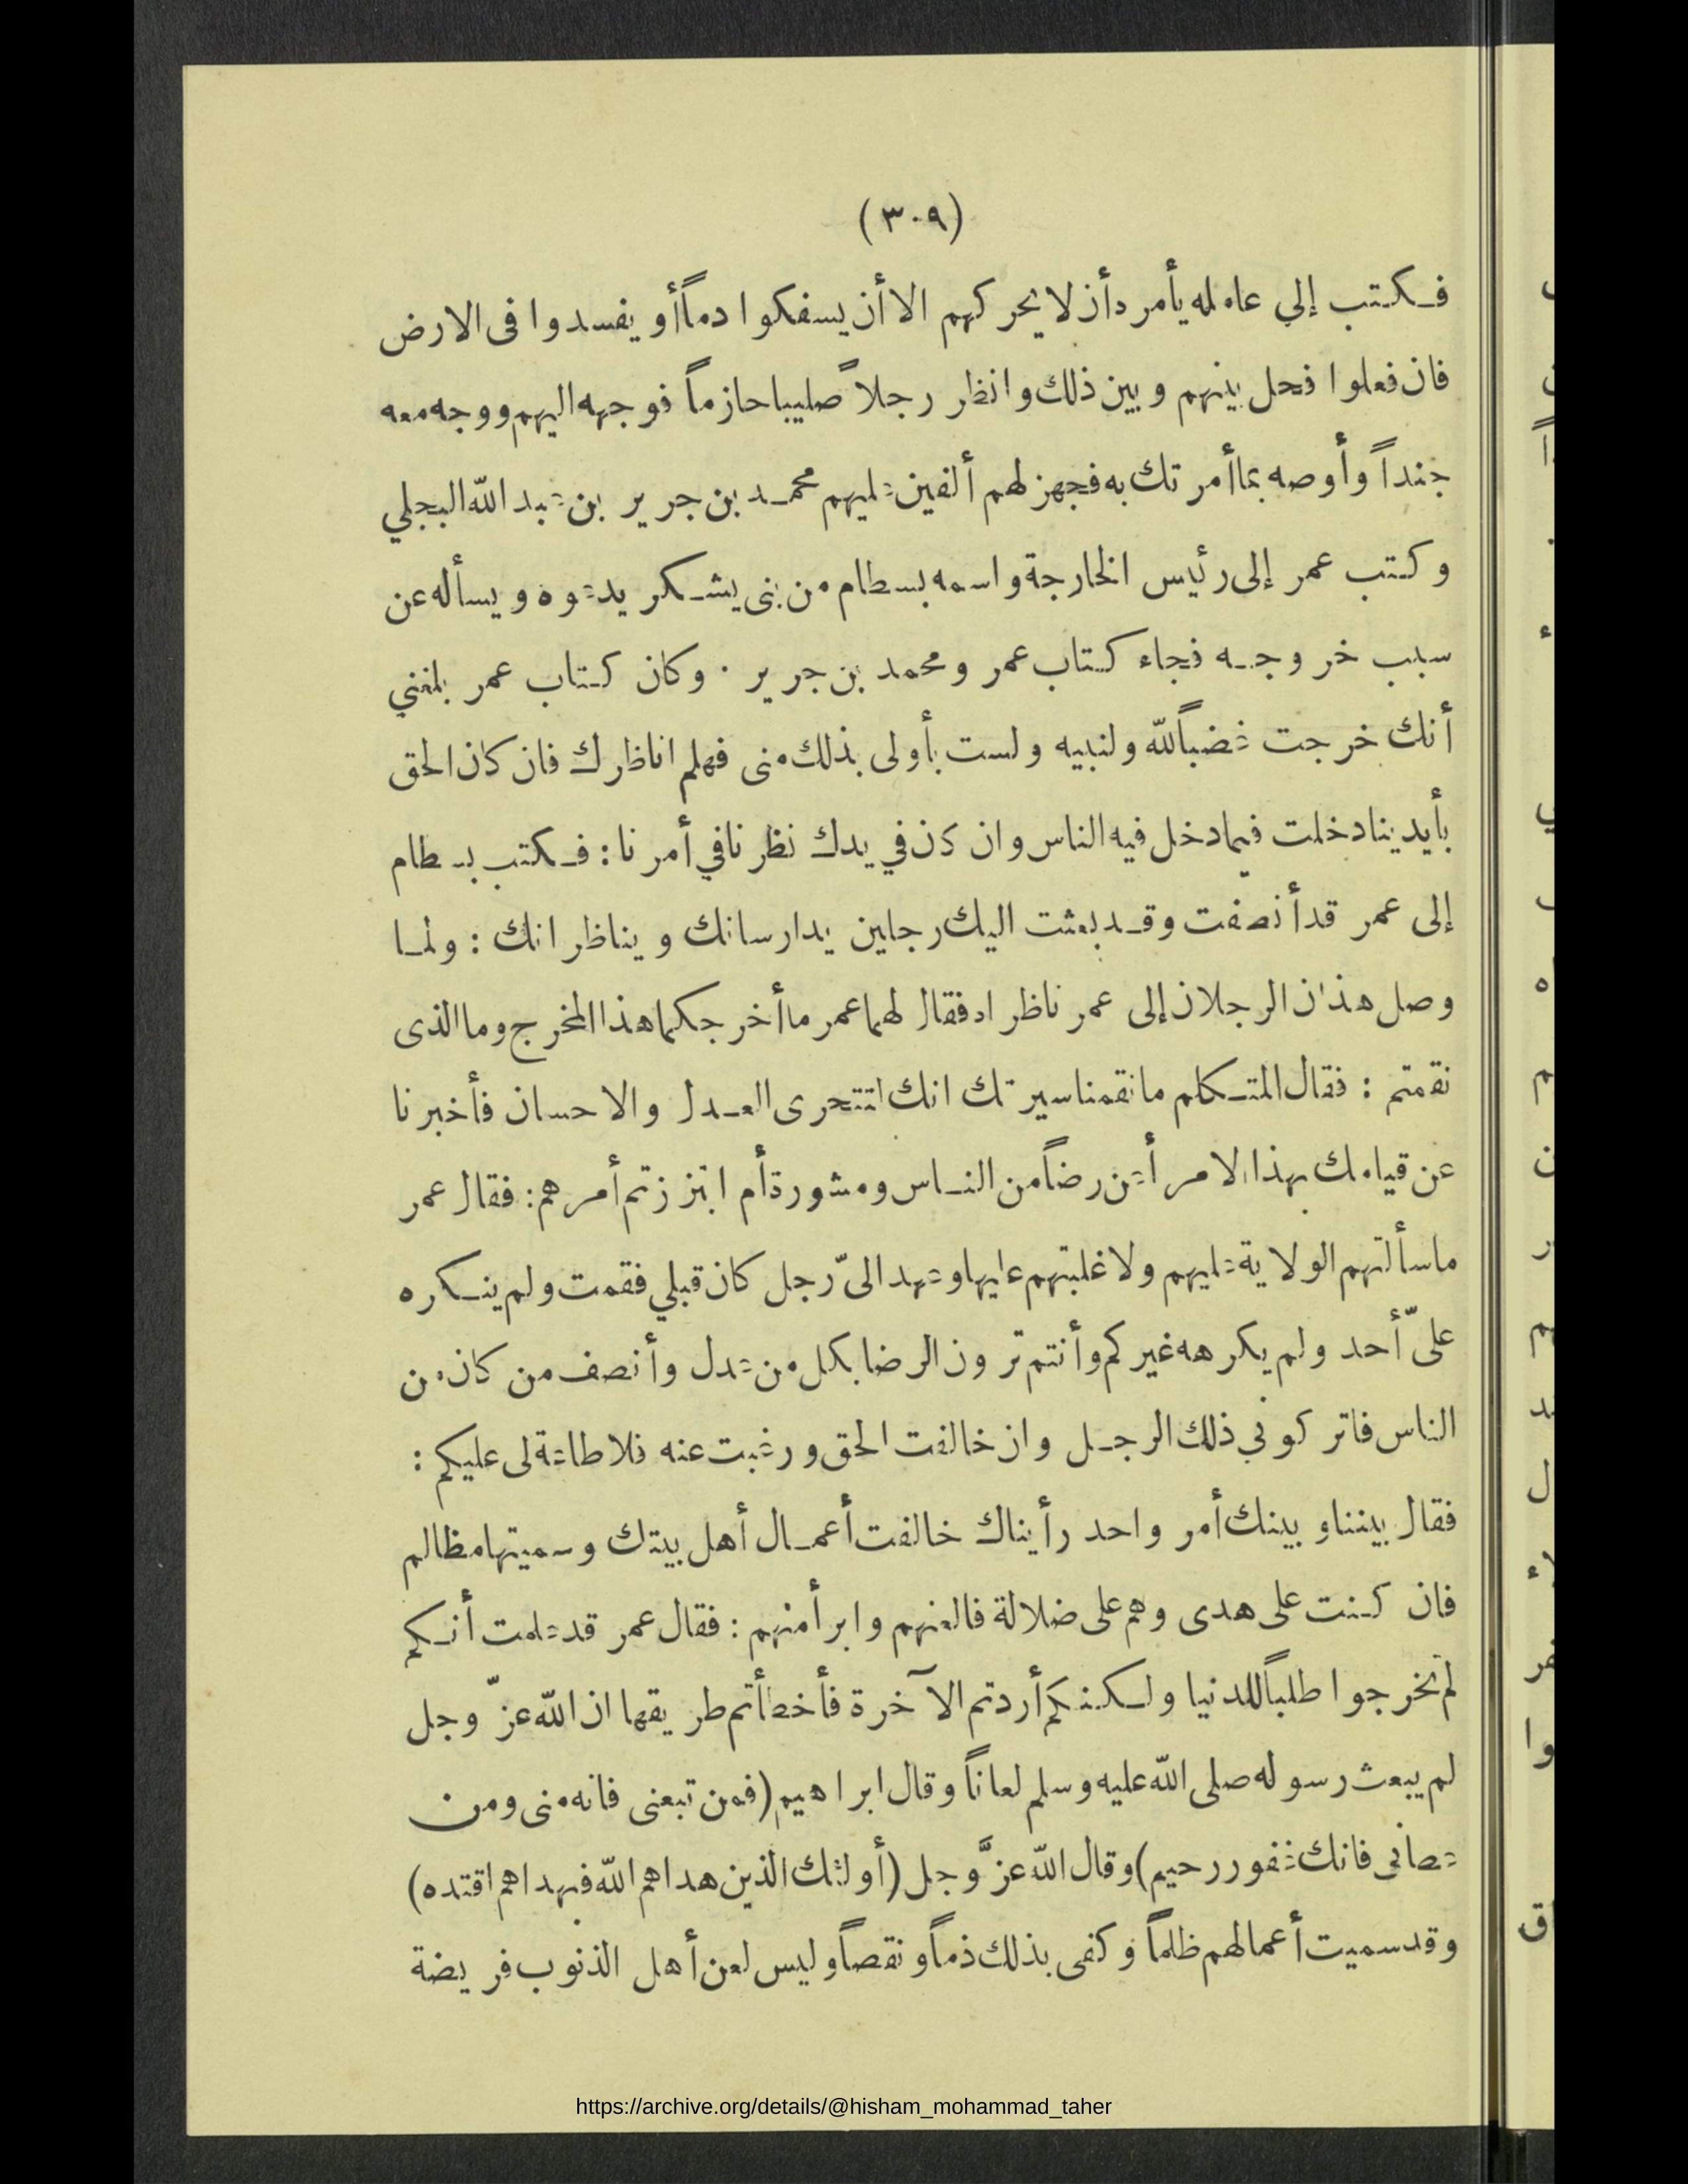 (٣٠٩)
فكتب إلي عامله يأمره أن لا يحركهم الا أن يسفكوا دماً أو يفسدوا فى الارض
فان فعلوا فحل بينهم وبين ذلك وانظر رجلاً صليبا حازماً فوجهه اليهم ووجه معه
جنداً وأوصه بما أمرتك به فجهز لهم ألفين عليهم محمد بن جرير بن عبد الله البجلي
وكتب عمر إلى رئيس الخارجة واسمه بسطام من بنى يشكر يدعوه ويسأله عن
سبب خروجه فجاء كتاب عمر ومحمد بن جرير . وكان كتاب عمر بلغني
أنك خرجت غضباً لله ولنبيه ولست بأولى بذلك منى فهلم اناظرك فان كان الحق
بأيدينا دخلت فيما دخل فيه الناس وان كان في يدك نظرنا في أمرنا : فكتب بسطام
إلى عمر قد أنصفت وقد بعثت اليك رجلين يدارسانك ويناظرانك : ولما
وصل هذان الرجلان إلى عمر ناظراه فقال لهما عمر ما أخرجكما هذا المخرج وما الذى
نقمتم : فقال المتكلم ما نقمنا سيرتك انك لتتحرى العدل والاحسان فأخبرنا
عن قيامك بهذا الامر أعن رضاً من الناس ومشورة أم ابتززتم أمرهم : فقال عمر
ما سألتهم الولاية عليهم ولا غلبتهم عليها وعهد الىّ رجل كان قبلي فقمت ولم ينكره
علىّ أحد ولم يكرهه غيركم وأنتم ترون الرضا بكل من عدل وأنصف من كان من
الناس فاتركوني ذلك الرجل وان خالفت الحق ورغبت عنه فلا طاعة لى عليكم :
فقال بيننا وبينك أمر واحد رأيناك خالفت أعمال أهل بيتك وسميتها مظالم
فان كنت على هدى وهم على ضلالة فالعنهم وابرأ منهم : فقال عمر قد علمت أنكم
لم تخرجوا طلباً للدنيا ولكنكم أردتم الآخرة فأخطأتم طريقها ان الله عزّ وجل
لم يبعث رسوله صلى الله عليه وسلم لعاناً وقال ابراهيم (فمن تبعنى فانه منى ومن
عصانى فانك غفور رحيم) وقال الله عزَّ وجل (أولئك الذين هداهم الله فبهداهم اقتده)
وقد سميت أعمالهم ظلماً وكفى بذلك ذماً ونقصاً وليس لعن أهل الذنوب فريضة
https://archive.org/details/@hisham_mohammad_taher